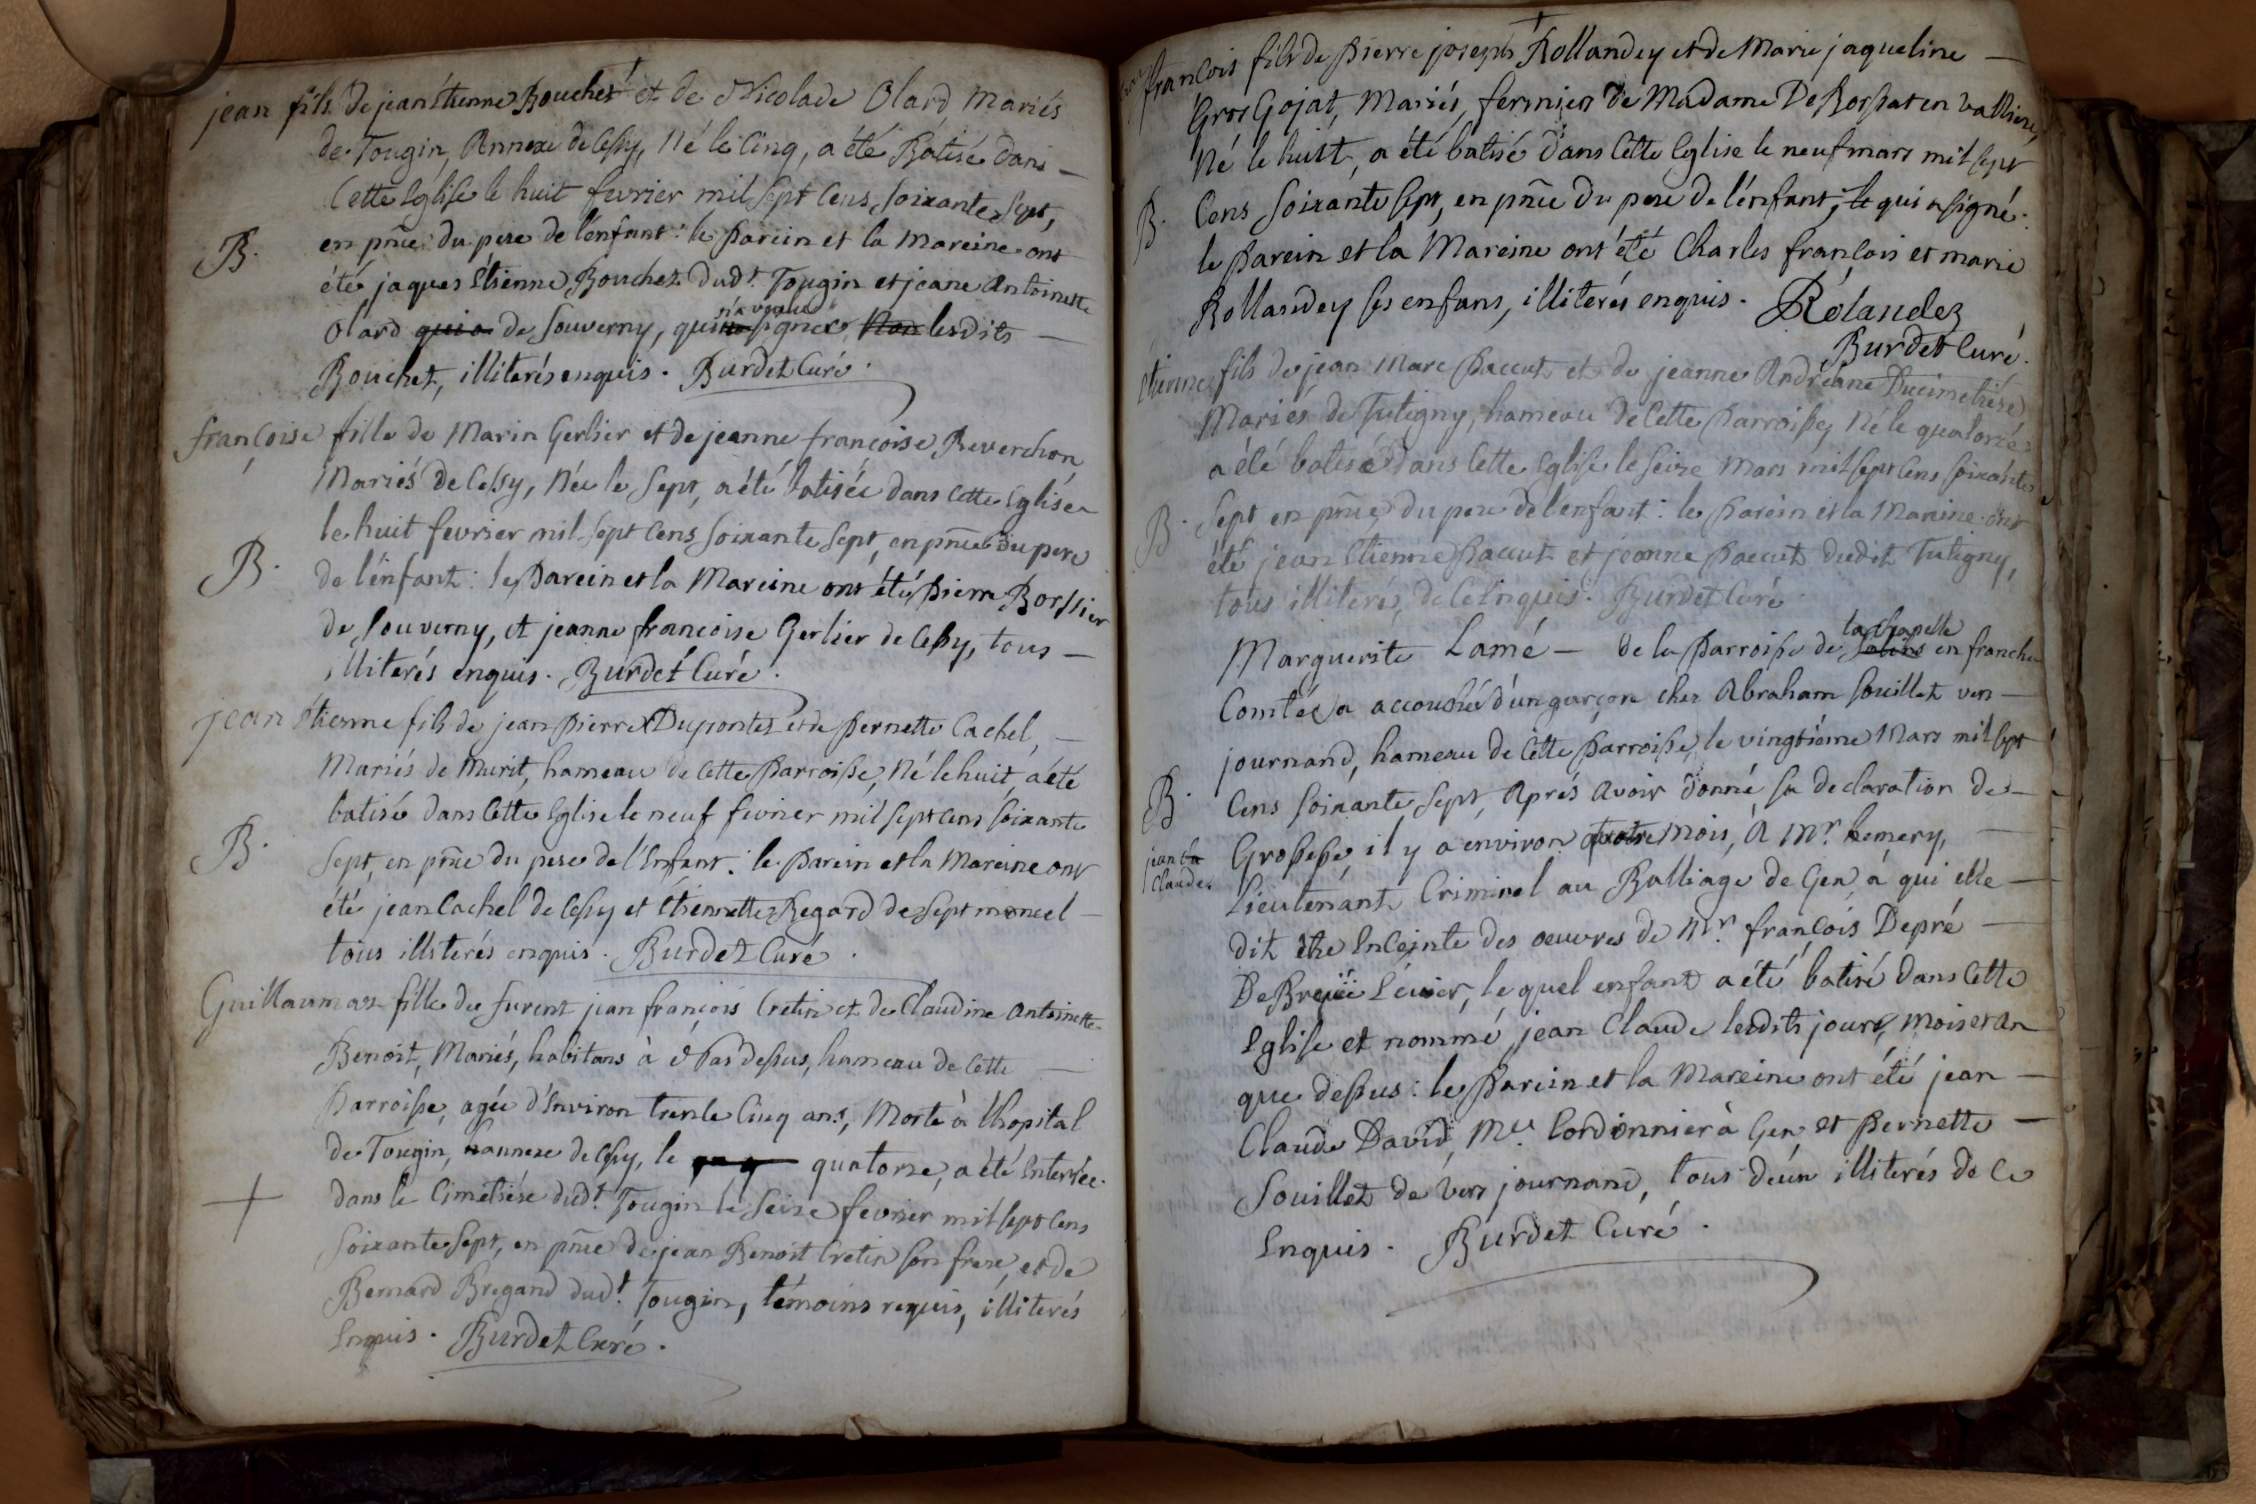 jean fils de jean Etienne Bouchet et de Nicolade Olard, Mariés
de Tougin, Annexe de Cessy, Né le Cinq, a été Batisé dans
Cette Eglise le huit fevrier mil sept Cens soixante sept,
B. en pñce du pere de l'enfant : le parein et la Mareine ont
été jaques Etienne Bouchet dudt. Tougin et jeane Antoinette
Olard qui a de Souverny, qui n'a voulu signer, lesdits
Bouchet, illiterés enquis. Burdet Curé.
françoise fille de Marin Gerlier et de jeanne françoise Reverchon
Mariés de Cessy, Née le sept, a été batisée dans Cette Eglise
le huit fevrier mil sept Cens soixante sept, en pñce du pere
B. de l'enfant : le parein et la Mareine ont été pierre Borssier
de Souverny, et jeanne françoise Gerlier de Cessy, tous
illiterés enquis. Burdet Curé.
jean Etienne fils de jean pierre Dupontet et de pernette Cachel,
Mariés de Murit, hameau de Cette parroisse, Né le huit, a été
batisé dans Cette Eglise le neuf fevrier mil sept cens soixante
B. Sept, en pñce du pere de l'Enfant : le parein et la Mareine ont
été jean Cachel de Cessy et Etiennette Regard de Septmoncel
tous illiterés enquis. Burdet Curé.
Guillaumaz fille de furent jean françois Cretin et de Claudine Antoinette
Benoit, Mariés, habitans à pas dessus, hameau de Cette
parroisse, agée d'Environ trente Cinq ans, Morte à l'hopital
de Tougin, annexe de Cessy, le quatorze, a été Enterrée
+ dans le Cimetiére dudt. Tougin le seize fevrier mil sept Cens
soixante sept, en pñce de jean Benoit Cretin son frere, et de
Bernard Bregand dudt. Tougin, témoins requis, illiterés
Enquis. Burdet Curé.
françois fils de pierre joseph Rollandey et de Marie jaqueline
Gros Gojat, Mariés, fermier de Madame De Borssat en Valliere,
Né le huit, a été batisé dans Cette Eglise le neuf mars mil sept
B. Cens soixante sept, en pñce du pere de l'enfant, qui a signé.
le parein et la Mareine ont été Charles françois et marie
Rollandey ses enfans, illiterés enquis. Rolandez
Burdet Curé.
Etienne fils de jean Marc paccut et de jeanne Andréane Ducimetiére
Mariés de Tutigny, hameau de Cette parroisse, Né le quatorze
a été batisé dans Cette Eglise le seize Mars mil sept Cens soixante
B. Sept en pñce du pere de l'enfant : le parein et la Mareine ont
été jean Etienne paccut et jeanne paccut dudit Tutigny,
tous illiterés, de Ce Enquis. Burdet Curé
la Chapelle
Marguerite Lamé – de la parroisse de Salins en franche
Comté, a accouché d'un garçon chez Abraham Souillet ver
journand, hameau de Cette parroisse, le vingtiéme Mars mil sept
B. Cens soixante sept, Aprés avoir donné sa declaration de
jean
Claude. Grossesse, il y a environ quatre mois, A Mr. hemery,
Lieutenant Criminel au Balliage de Gex, à qui elle
dit être Enceinte des oeuvres de Mr. françois Depré
De Ecuier, le quel enfant a été batisé dans Cette
Eglise et nommé jean Claude lesdits jours, mois et an
que dessus : le parein et la Mareine ont été jean
Claude David, Me. Cordonnier à Gex et pernette
Souillet de vers journand, tous deux illiterés de Ce
Enquis. Burdet Curé.